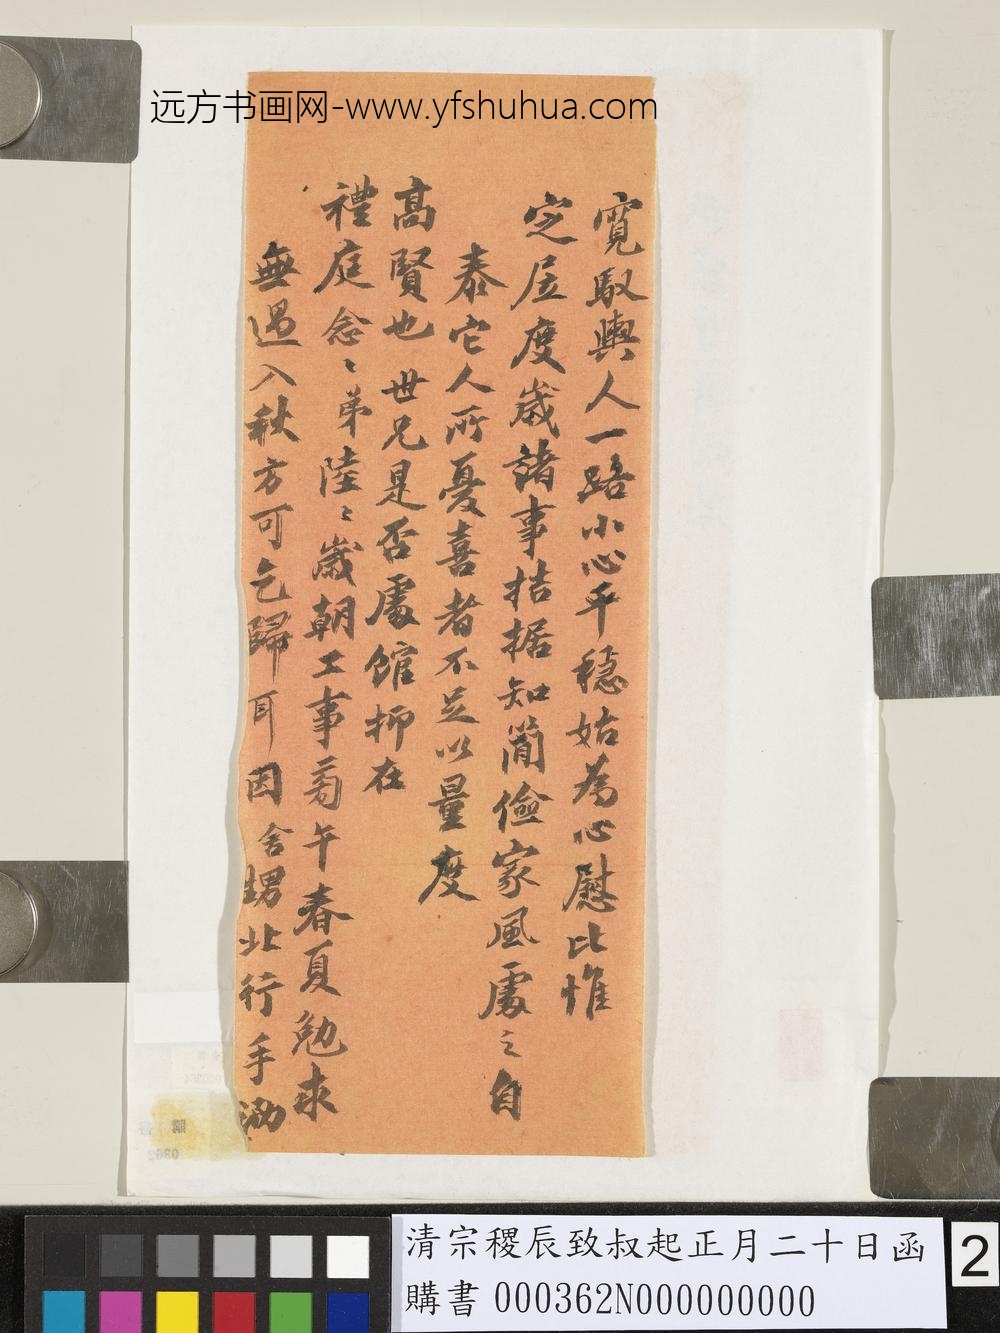 远方书画网-www.yfshuhua.com
寬馭輿人一路小心平穩始為心慰比惟
定居度歲諸事拮据知簡儉家風處之自
泰它人所憂喜者不足以量度
高賢也世兄是否處館抑在
禮庭念〻弟陸〻歲朝工事蕳午春夏勉求
無過入秋方可乞歸耳因舍甥北行手泐
清宗稷辰致叔起正月二十日函
購書 000362N000000000
2